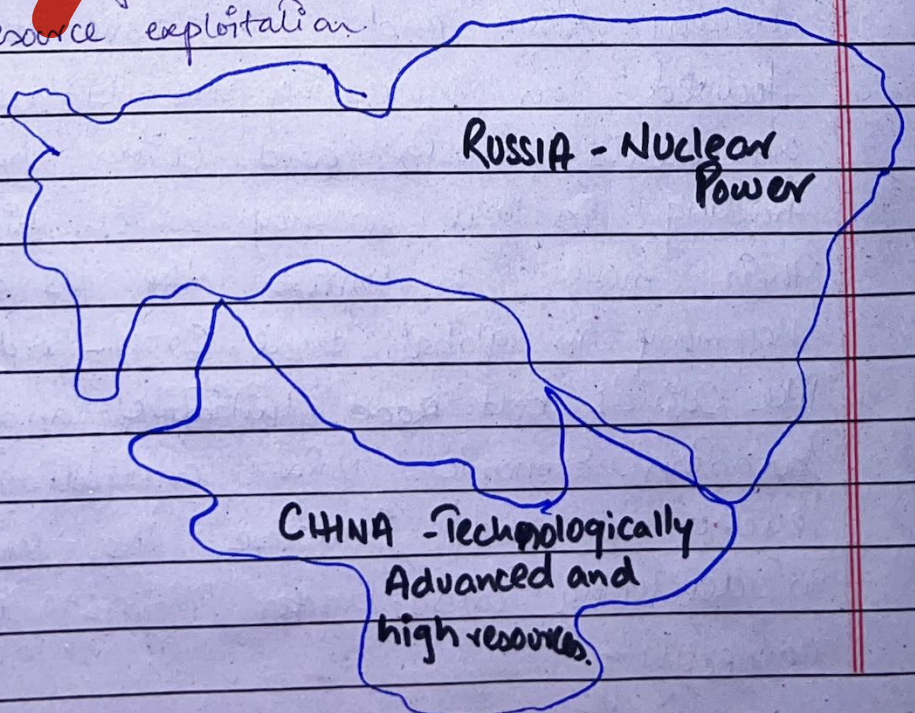 esource exploitation
RUSSIA - Nuclear
Power
CHINA - Technologically
Advanced and
high resources.